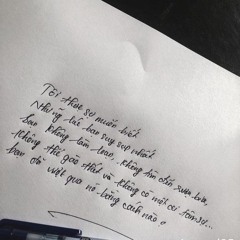 Tôi thực sự muốn biết
Những lúc bạn suy sụp nhất
bạn không làm loạn, không tìm đến rượu bia,
không thể gào thét và không có một cơ ... sự...
bạn đã vượt qua nó bằng cách nào?